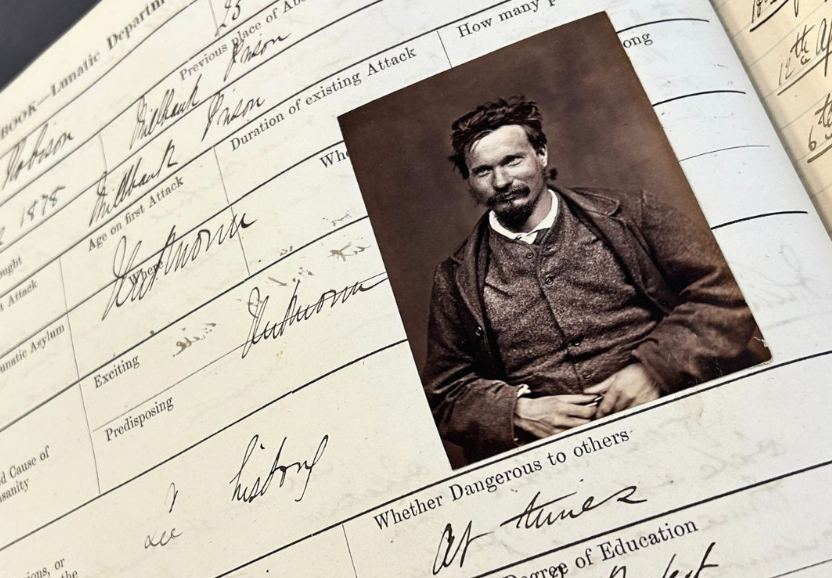 BOOK—Lunatic Departm
How many p
23
Previous Place of Abo
Robison
Millbank Prison
ong
Duration of existing Attack
1878
Millbank Prison
Whe
ought
Age on first Attack
t Attack
Unknown
Where
unatic Asylum
Exciting
Unknown
Predisposing
d Cause of
nsanity
see history
Whether Dangerous to others
At times
ions, or
the
Degree of Education
12th Ap
6th